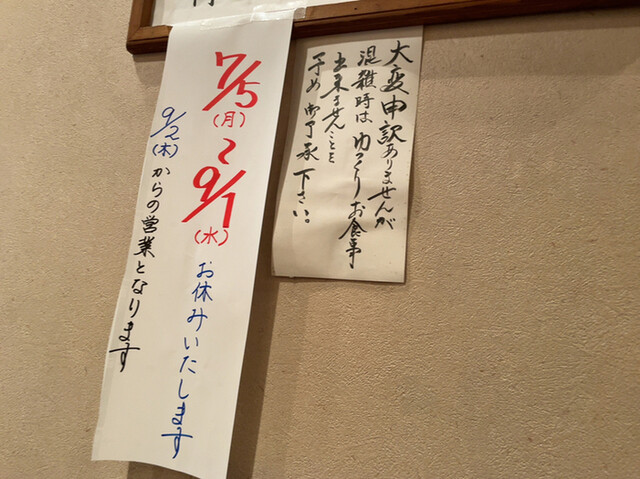 7/5
(月)
〜
9/1
(水)
お休みいたします
9/2(木)からの営業となります
大変申訳ありませんが
混雑時はゆっくりお食事
出来ませんことを
予め御了承下さい。